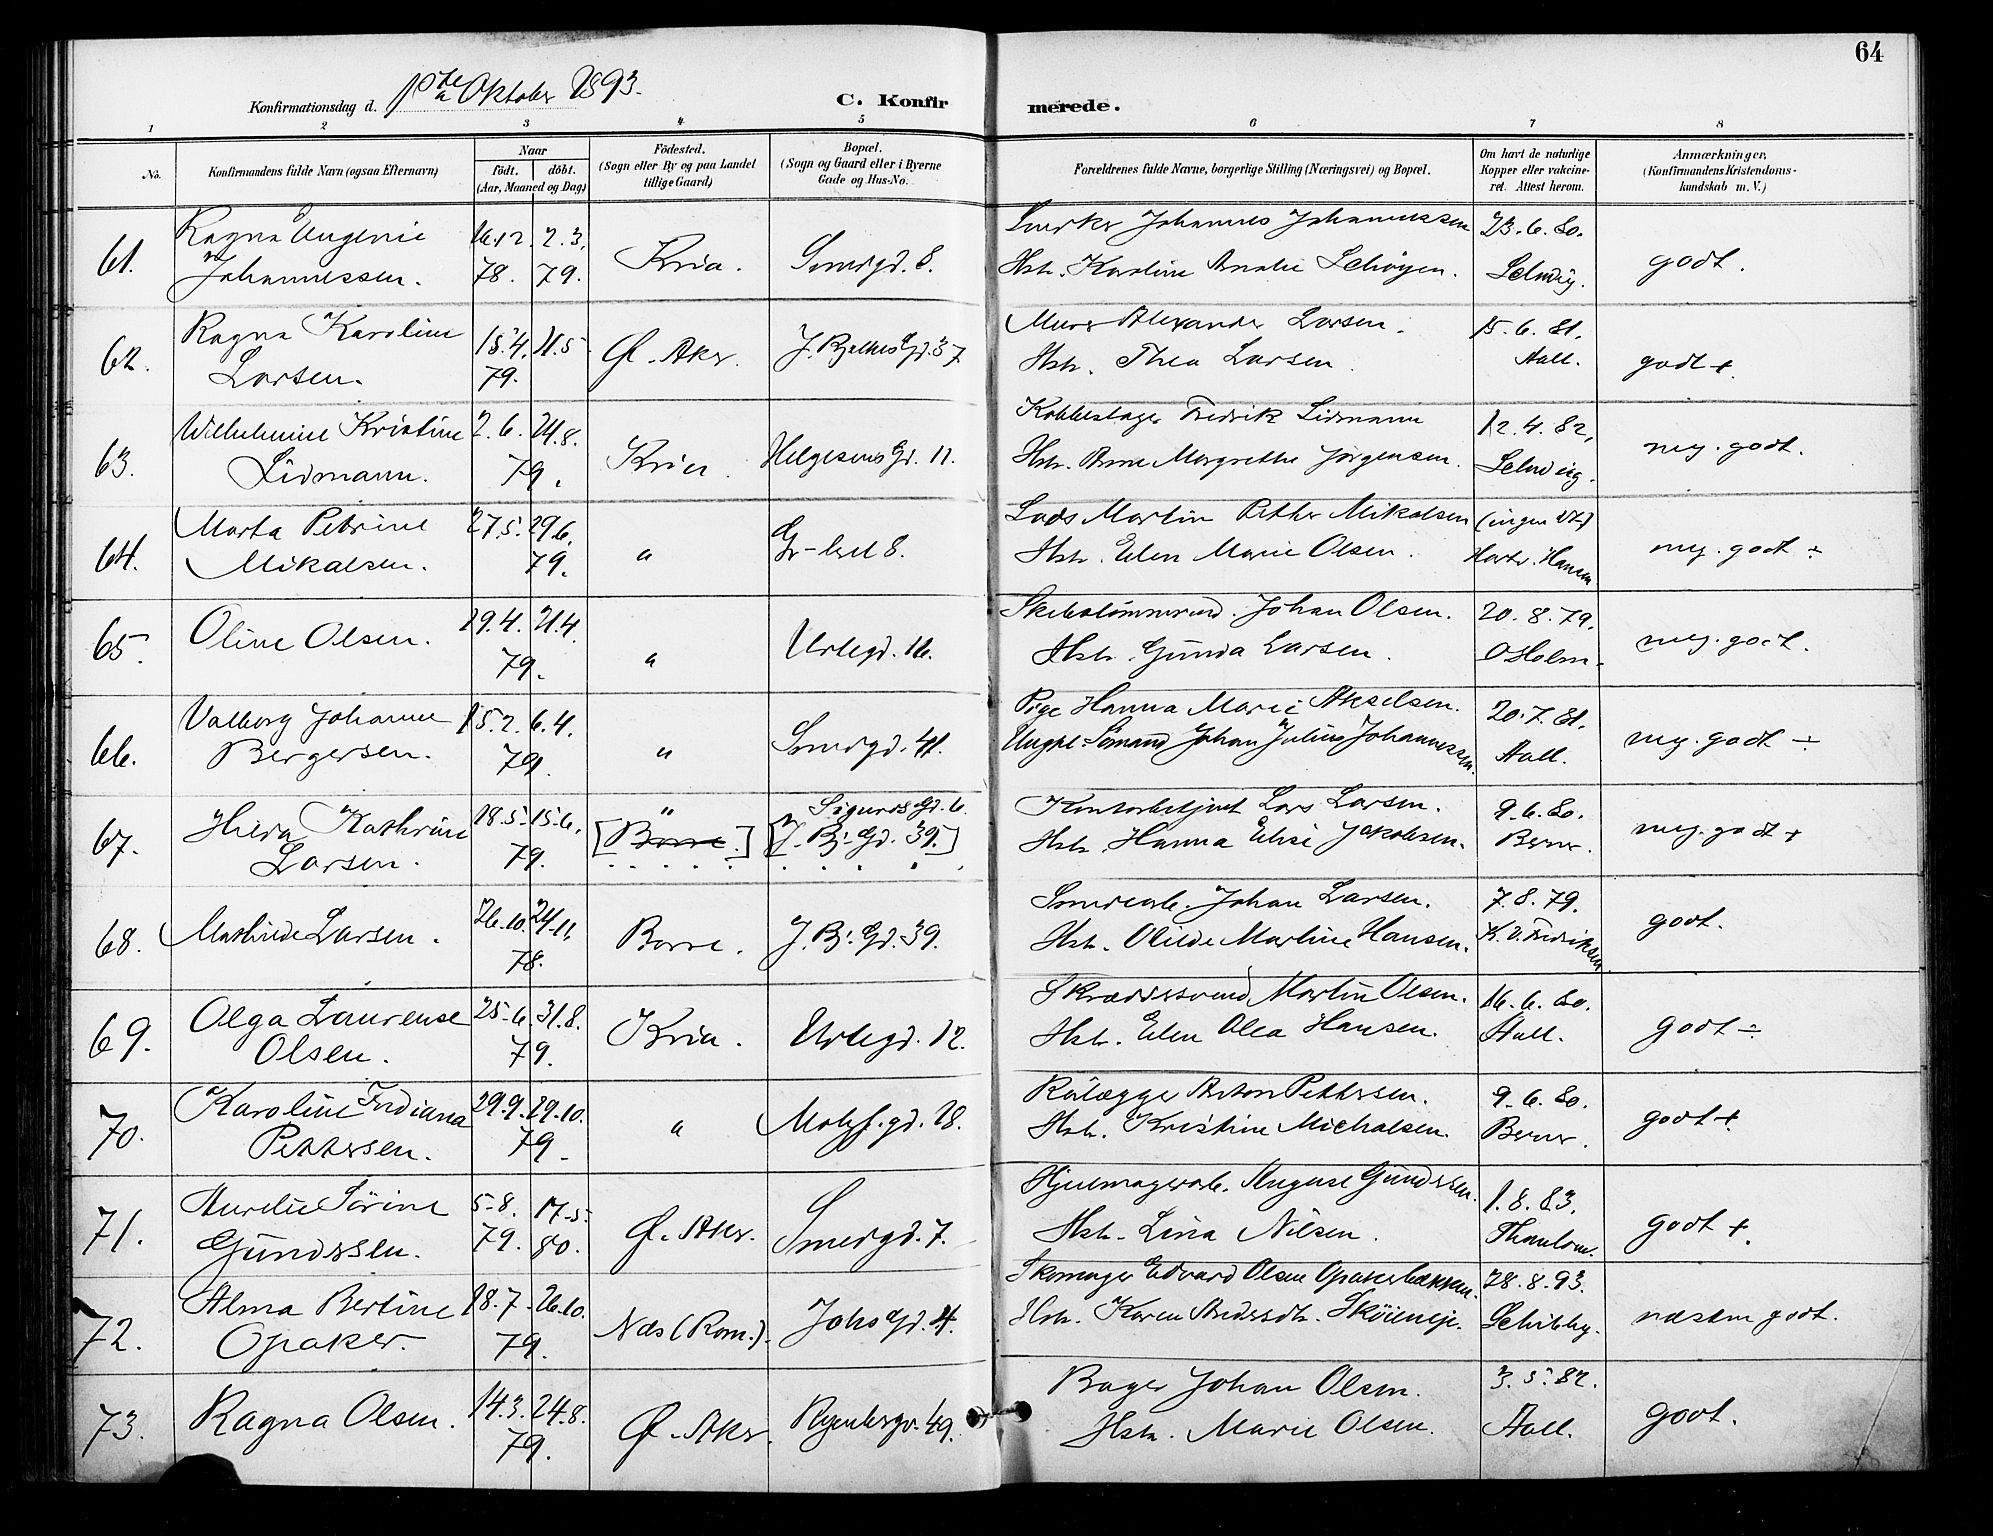 64
Konfirmationsdag d. 1ste Oktober 1893.
C. Konfirmerede.
1 2 3 4 5 6 7 8
No.
Konfirmandens fulde Navn (ogsaa Efternavn)
Naar
födt. döbt.
(Aar, Maaned og Dag)
Födested.
(Sogn eller By og paa Landet
tillige Gaard)
Bopæl.
(Sogn og Gaard eller i Byerne
Gade og Hus-No.
Forældrenes fulde Navne, borgerlige Stilling (Næringsvei) og Bopæl.
Om havt de naturlige
Kopper eller vakcine-
ret. Attest herom.
Anmærkninger.
(Konfirmandens Kristendoms-
kundskab m. V.)
61. Ragna Eugenie 16.12. 2.3. Kria. Smedgd. 8. Johannes Johannessen 23.6.80. godt.
Johannessen. 78. 79. Hstr. Karoline Amalie Schøyen. Selmdig.
62. Ragna Karoline 15.4. 11.5. Ø. Aker. J. Bjelkes Gd. 37 Murer Alexander Larsen. 15.6.81. godt +.
Larsen. 79. Hstr. Thea Larsen Aall.
63. Wilhelmine Kristine 2.6. 24.8. Kria. Helgesens Gd. 11. Fredrik Lidmann 12.4.82, meg. godt.
Lidmann. 79. Hstr. Anne Margrethe Jørgensen.
64. Marta Petrine 27.5. 29.6. " 8. Lods Martin Petter Mikalsen (ingen meg. godt ÷
Mikalsen. 79. Hstr. Elen Marie Olsen. Hansen
65. Oline Olsen. 19.4. 21.4. " Urtegd. 16. Skibstømmermd. Johan Olsen. 20.8.79. meg. godt.
79. Hstr. Gunda Larsen. O Holm.
66. Valborg Johanne 15.2. 6.4. " Smedgd. 41. Pige Hanna Marie Akselsen. 20.7.81. meg. godt ÷
Bergersen. 79. Ungkl. Sømand Johan Julius Johannessen. Aall.
67. Hilda Kathrine 18.5. 15.6. " Sigurds Gd. 6 Kontorbetjent Lars Larsen. 9.6.80. meg. godt +
Larsen. 79. [Borre.] [J. Bj. Gd. 39.] Hstr. Hanna Elise Jakobsen. Berner.
68. Mathilde Larsen. 26.10. 24.11. Borre. J. Bj. Gd. 39. Smedearb. Johan Larsen. 7.8.79. godt.
78. Hstr. Olilde Martine Hansen. K. V. Fredriksen
69. Olga Laurense 25.6. 31.8. Kria. Urtegd. 12. Skræddersvend Martin Olsen. 16.6.80. godt ÷
Olsen. 79. Hstr. Elen Olea Hansen. Aall.
70. Karoline Indiana 29.9. 29.10. " 18. Rølægger Anton Pettersen. 9.6.80. godt +.
Pettersen. 79. Hstr. Kristine Michalsen. Berner.
71. Aurelie Sørine 5.8. 17.5. Ø. Aker. Smedgd. 7. Hjulmagerarb. August Gundersen. 1.8.83. godt +.
Gundersen. 79. 80. Hstr. Lina Nilsen. Thaulow.
72. Alma Bertine 18.7. 26.10. Næs (Rom.). Johs Gd. 4. Skomager Edvard Olsen Opakerbakken. 28.8.93. næsten godt.
Opaker. 79. Hstr. Karen Andersdtr. Schibby.
73. Ragna Olsen. 14.3. 24.8. Ø. Aker. Ryenbergv. 49. Bager Johan Olsen. 3.5.82. godt.
79. Hstr. Marie Olsen. Aall.